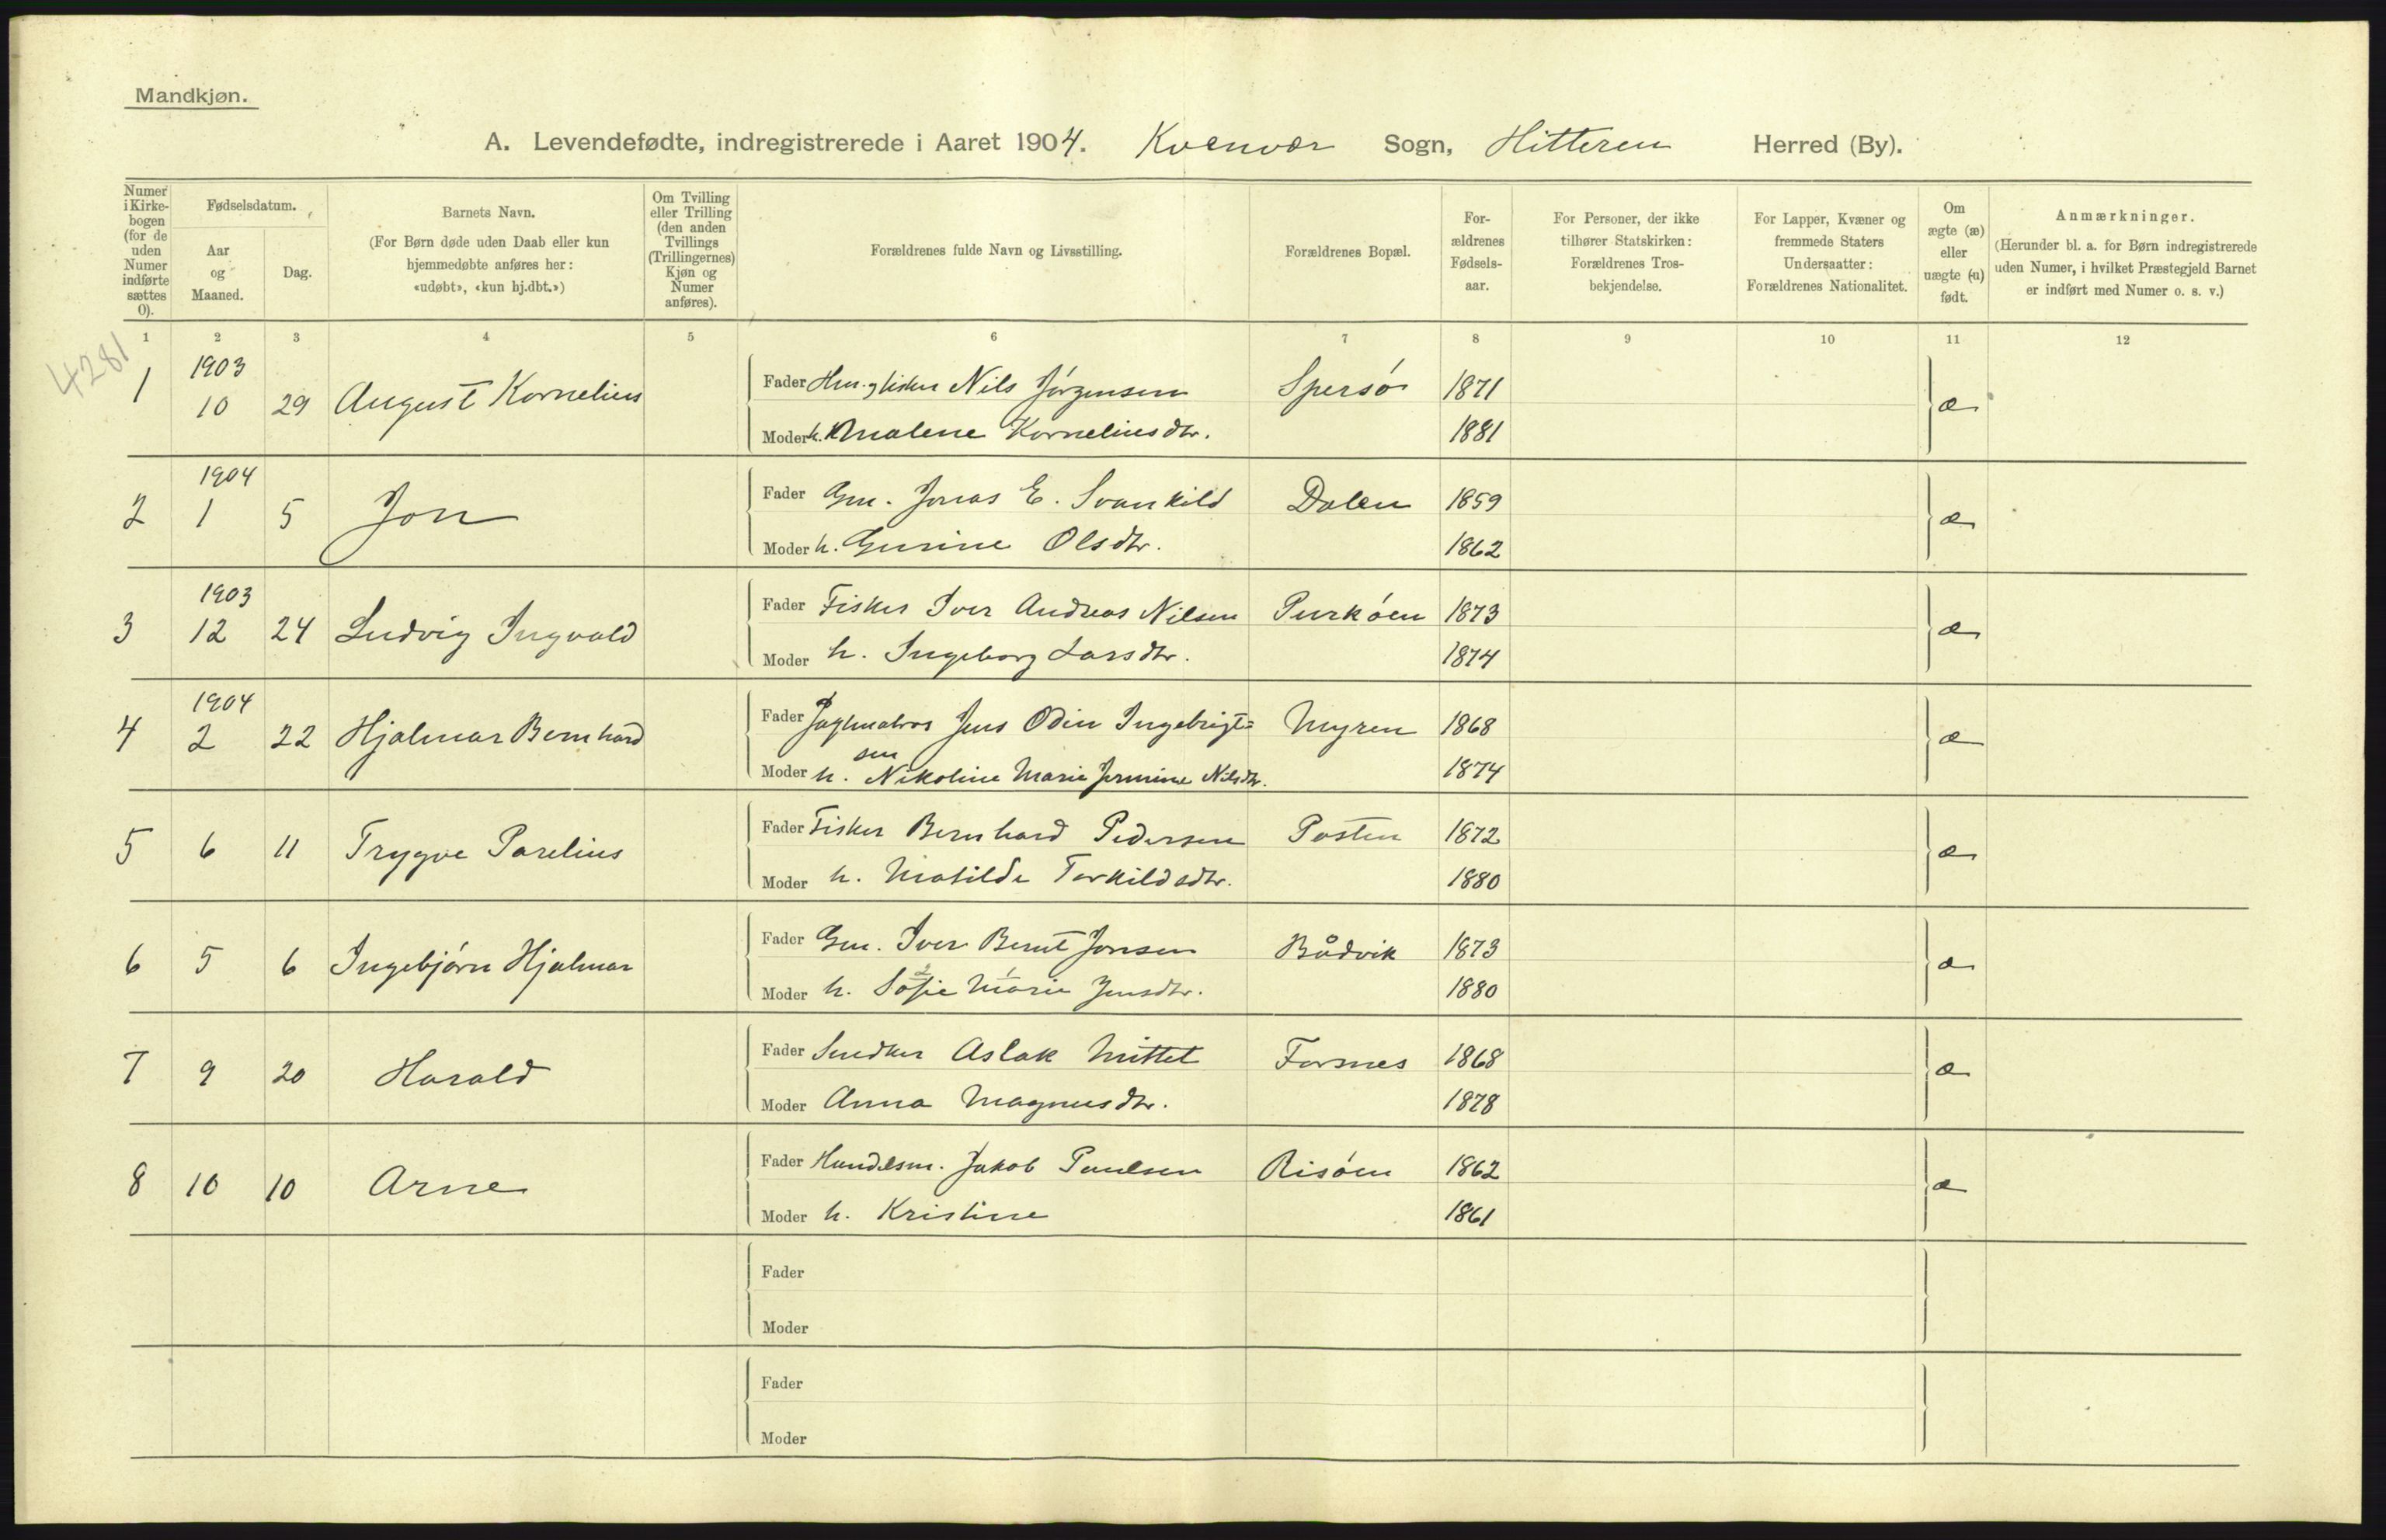 Mandkjøn.
A. Levendefødte, indregistrerede i Aaret 1904. Kvenvær Sogn, Hitteren Herred (By).
Numer i Kirkebogen (for de uden Numer indførte sættes 0).
Fødselsdatum.
Aar og Maaned.
Dag.
Barnets Navn.
(For Børn døde uden Daab eller kun hjemmedøbte anføres her: «udøbt», «kun hj.dbt.»)
Om Tvilling eller Trilling (den anden Tvillings (Trillingernes) Kjøn og Numer anføres).
Forældrenes fulde Navn og Livsstilling.
Forældrenes Bopæl.
Forældrenes Fødselsaar.
For Personer, der ikke tilhører Statskirken: Forældrenes Trosbekjendelse.
For Lapper, Kvæner og fremmede Staters Undersaatter: Forældrenes Nationalitet.
Om ægte (æ) eller uægte (u) født.
Anmærkninger.
(Herunder bl. a. for Børn indregistrerede uden Numer, i hvilket Præstegjeld Barnet er indført med Numer o. s. v.)
1 2 3 4 5 6 7 8 9 10 11 12
4281
1903
1 10 29 August Kornelius Fader Nils Jörgensen Spersö 1871 æ
Moder h. Malene Korneliusdtr. 1881
1904
2 1 5 Jon Fader Gm. Jonas E. Svankild Dalen 1859 æ
Moder h. Gurine Olsdtr. 1862
1903
3 12 24 Ludvig Ingvald Fader Fisker Iver Andreas Nilsen Purköen 1873 æ
Moder h. Ingeborg Larsdtr. 1874
1904
4 2 22 Hjalmar Bernhard Fader Jens Odin Ingebrigt= Myren 1868 æ
sen
Moder h. Nikoline Marie Jermine Nilsdtr. 1874
5 6 11 Trygve Parelius Fader Fisker Bernhard Pedersen Posten 1872 æ
Moder h. Matilde Torkildsdtr. 1880
6 5 6 Ingebjörn Hjalmar Fader Gm. Iver Bernt Jonsen Bådvik 1873 æ
2 1
Moder h. Sofie Marie Jensdtr. 1880
7 9 20 Harald Fader Snedker Aslak Mittet Forsnes 1868 æ
Moder Anna Magnusdtr. 1878
8 10 10 Arne Fader Handelsm. Jakob Paulsen Risöen 1862 æ
Moder h. Kristine 1861
Fader
Moder
Fader
Moder